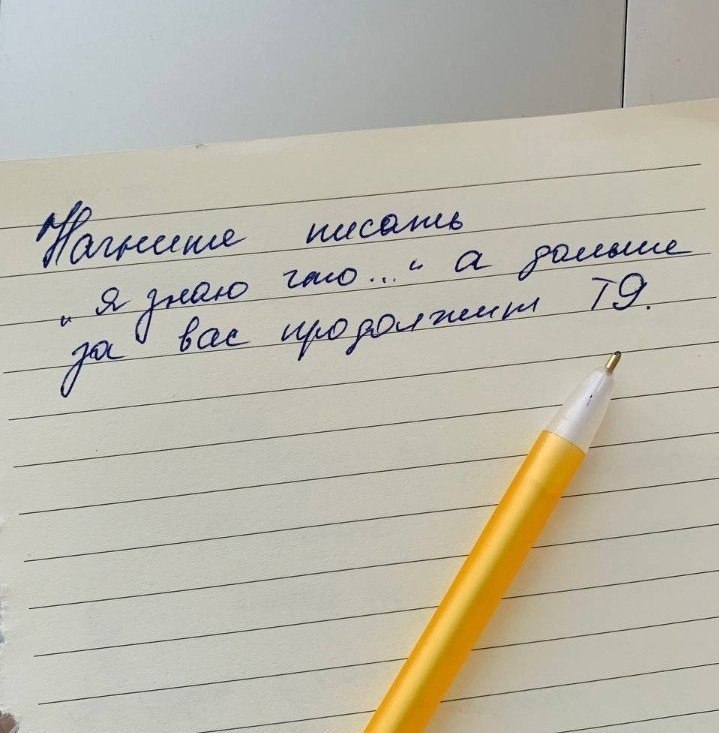 Начните писать
„Я знаю что..." а дальше
за вас продолжит Т9.